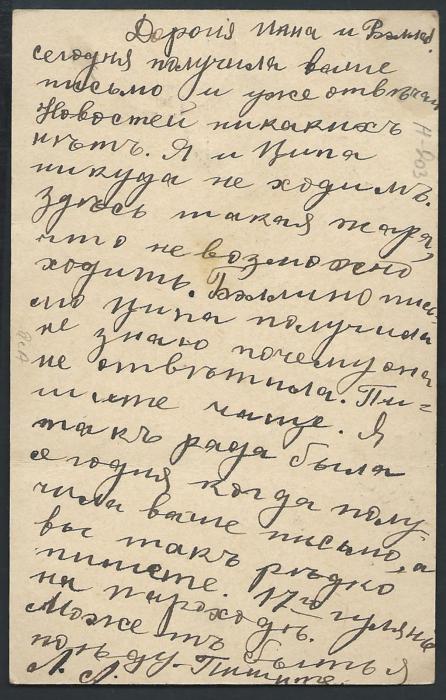 Дорогія Нана и Бэлла!
сегодня получила ваше
письмо и уже отвѣчаю
Новостей никакихъ
нѣтъ. Я и Ципа
никуда не ходимъ.
Здѣсь такая жара,
что невозможно
ходить. Бэллино пись-
мо Ципа получила
не знаю почему она
не отвѣтила. Пи-
шите чаще. Я
такъ рада была
сегодня когда полу-
чила ваше письмо, а
вы такъ рѣдко
пишете. 17го гулянье
на пароходѣ.
Можетъ быть я
поѣду. Пишите.
Л. Л.